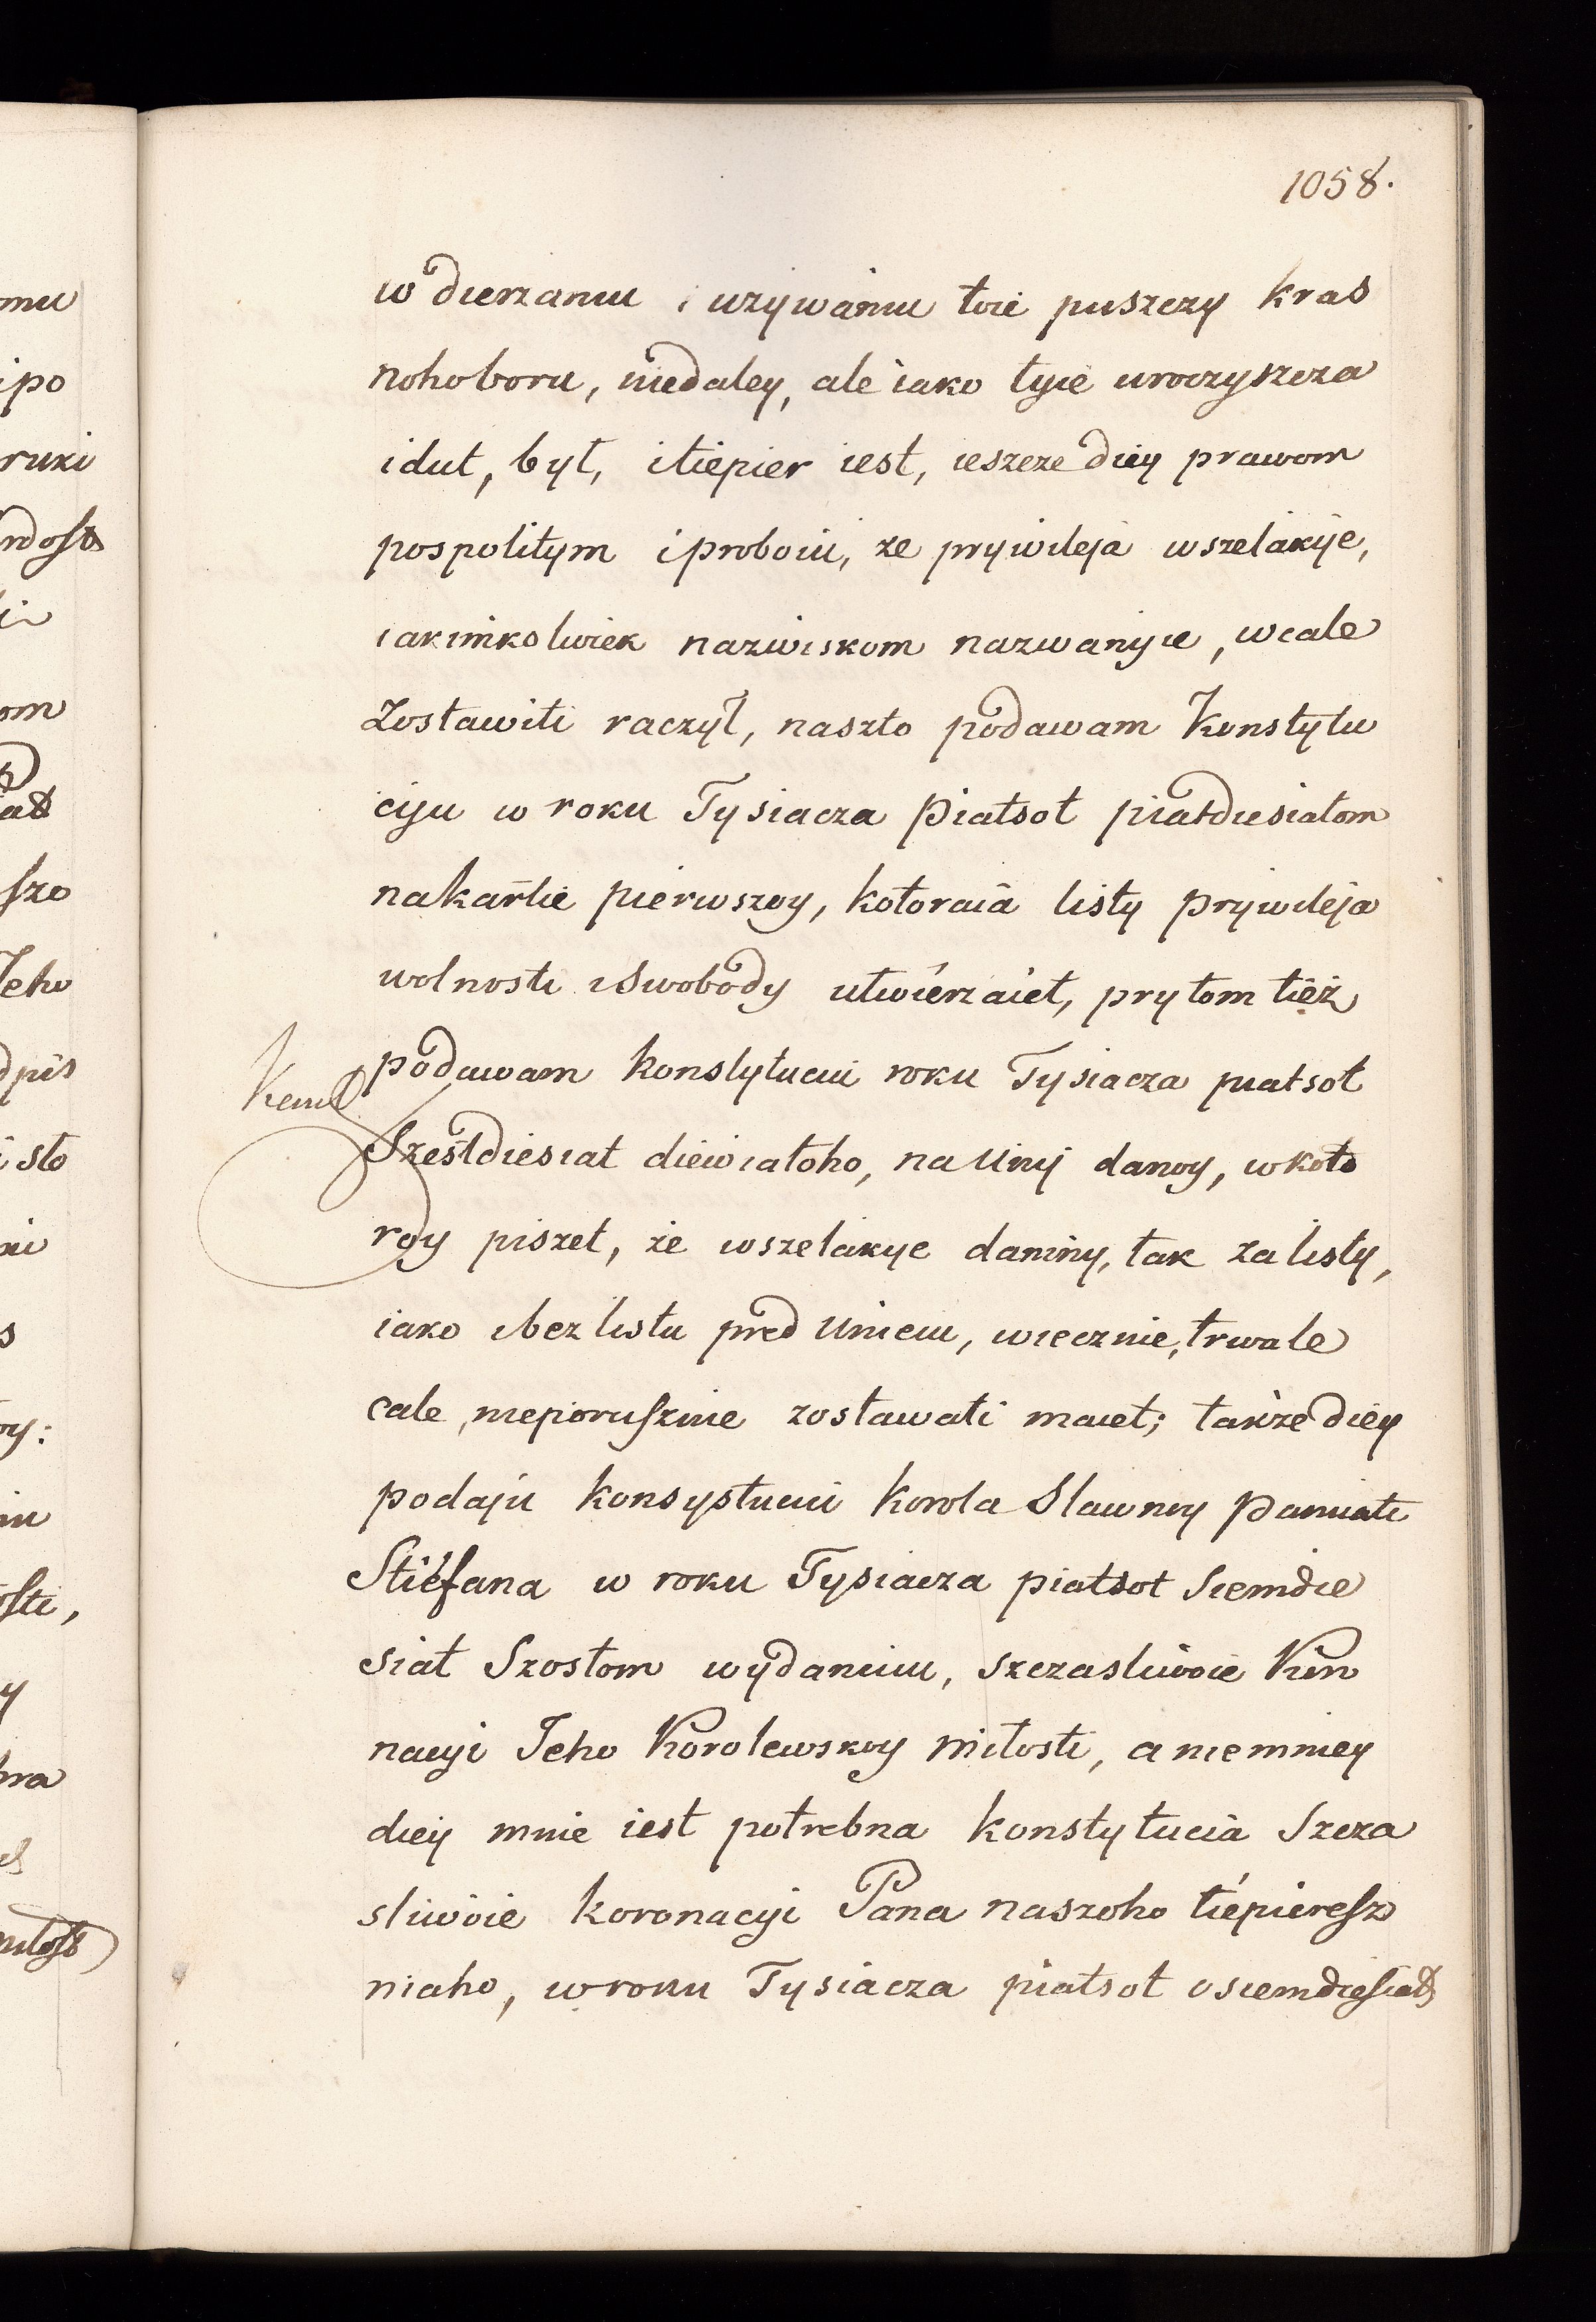 1058.
w dierzaniu i uzywaniu toie puszczy kras
nohoboru, niedaley, ale iako tyie uroczyszcza
idut, był, i tiepier iest, ieszcze diey prawom
pospolitym i proboiu, ze prywileja wszelakije,
iakimkolwiek nazwiskom nazwanyie, wcale
Zostawiti raczył, naszto podawam Konstytu
cyju w roku Tysiacza Piatsot piatdiesiatom
na kartie pierwszoy, kotoraia listy prywileja
wolnosti i Swobody utwierzaiet, prytom tież
podawam konstytucii roku Tysiacza piatsot
Sześtdiesiat diewiatoho, na Unij danoy, w koto
roy piszet, że wszelakye daniny, tak za listy,
iako i bez listu pred Unieiu, wiecznie, trwale
cale, nieporusznie zostawati maiet; takze diey
podaju konsystucii korola Sławnoy Pamiati
Stiefana w roku Tysiacza piatsot Siemdie
siat Szostom wydaniiu, szczasliwoie Kon
nacyi Jeho Korolewskoy miłosti, a niemniey
diey mnie iest potrebna konstytucia Szcza
sliwoie koronacyi Pana naszoho tiepieresz
niaho, w roku Tysiacza piatsot osiemdiesiat